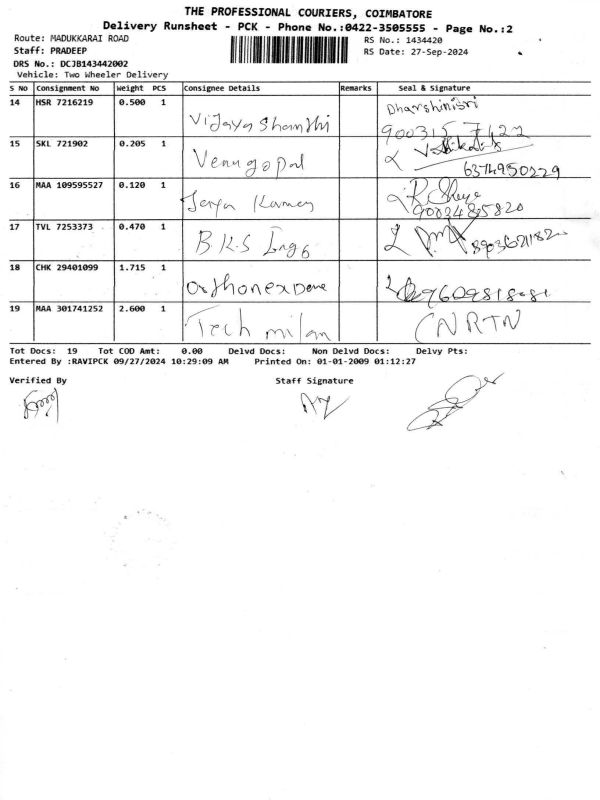 THE PROFESSIONAL COURIERS, COIMBATORE
Delivery Runsheet - PCK - Phone No.:0422-3505555 - Page No.:2
Route: MADUKKARAI ROAD RS No.: 1434420
Staff: PRADEEP RS Date: 27-Sep-2024
DRS No.: DCJB143442002
Vehicle: Two Wheeler Delivery
S No Consignment No Weight PCS Consignee Details Remarks Seal & Signature
14 HSR 7216219 0.500 1 Vijaya Shanthi Dharshinisri
15 SKL 721902 0.205 1 Venugopal 6374950229
16 MAA 109595527 0.120 1 9002485820
17 TVL 7253373 0.470 1 B.K.S Engg
18 CHK 29401099 1.715 1
19 MAA 301741252 2.600 1 Tech milan CNRTN
Tot Docs: 19 Tot COD Amt: 0.00 Delvd Docs: Non Delvd Docs: Delvy Pts:
Entered By :RAVIPCK 09/27/2024 10:29:09 AM Printed On: 01-01-2009 01:12:27
Verified By Staff Signature